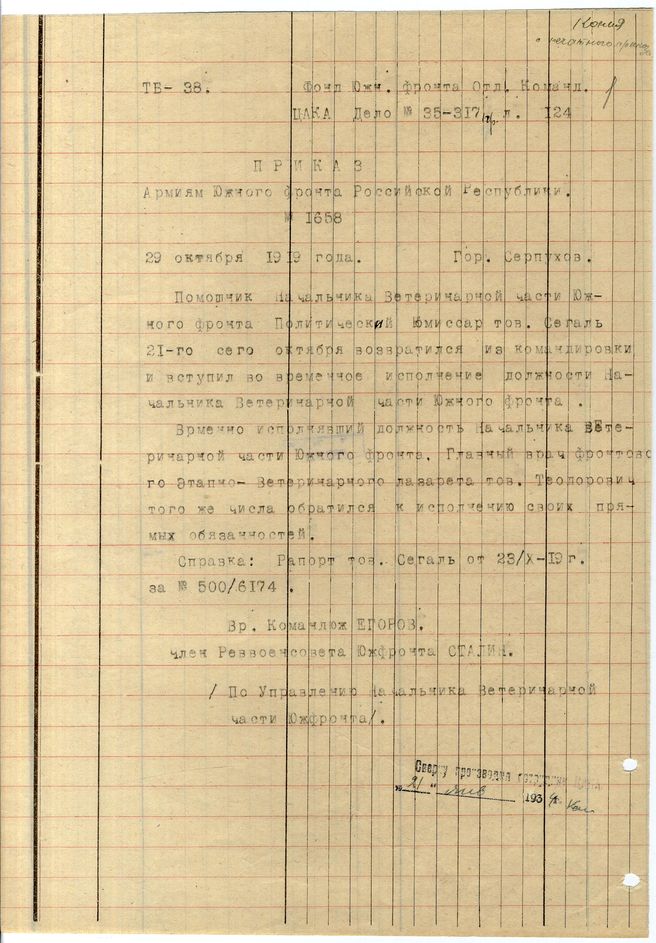 Копия
с печатного приказа
ТБ- 38. Фонд Южн. фронта Отд. Команд.
ЦАКА Дело № 35-317 л. 124
П Р И К А З
Армиям Южного фронта Российской Республики.
№ 1658
29 октября 1919 года. Гор. Серпухов.
Помошник Начальника Ветеринарной части Юж-
ного фронта Политический Юмиссар тов. Сегаль
21-го сего октября возвратился из командировки
и вступил во временное исполнение должности На-
чальника Ветеринарной части Южного фронта .
Врменно исполнявший должность Начальника ВЕте-
ринарной части Южного фронта. Главный врач фронтово
го Этапно- Ветеринарного лазарета тов. Теодорович
того же числа обратился к исполнению своих пря-
мых обязанностей.
Справка: Рапорт тов. Сегаль от 23/X-19 г.
за № 500/6174 .
Вр. Командюж ЕГОРОВ.
член Реввоенсовета Южфронта СТАЛИН.
/ По Управлению Начальника Ветеринарной
части Южфронта/.
Сверку произвела
"21" янв 193